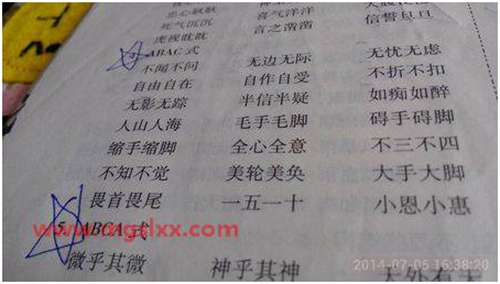 忠心耿耿
死气沉沉 喜气洋洋
虎视眈眈 言之凿凿 信誓旦旦
ABAC 式
不闻不问 无边无际 无忧无虑
自由自在 自作自受 不折不扣
无影无踪 半信半疑 如痴如醉
人山人海 毛手毛脚 碍手碍脚
缩手缩脚 全心全意 不三不四
不知不觉 美轮美奂 大手大脚
畏首畏尾 一五一十 小恩小惠
5 ABCA 式
微乎其微 神乎其神 天外有天
www.mgslxx.com
2014-07-05 16:38:20